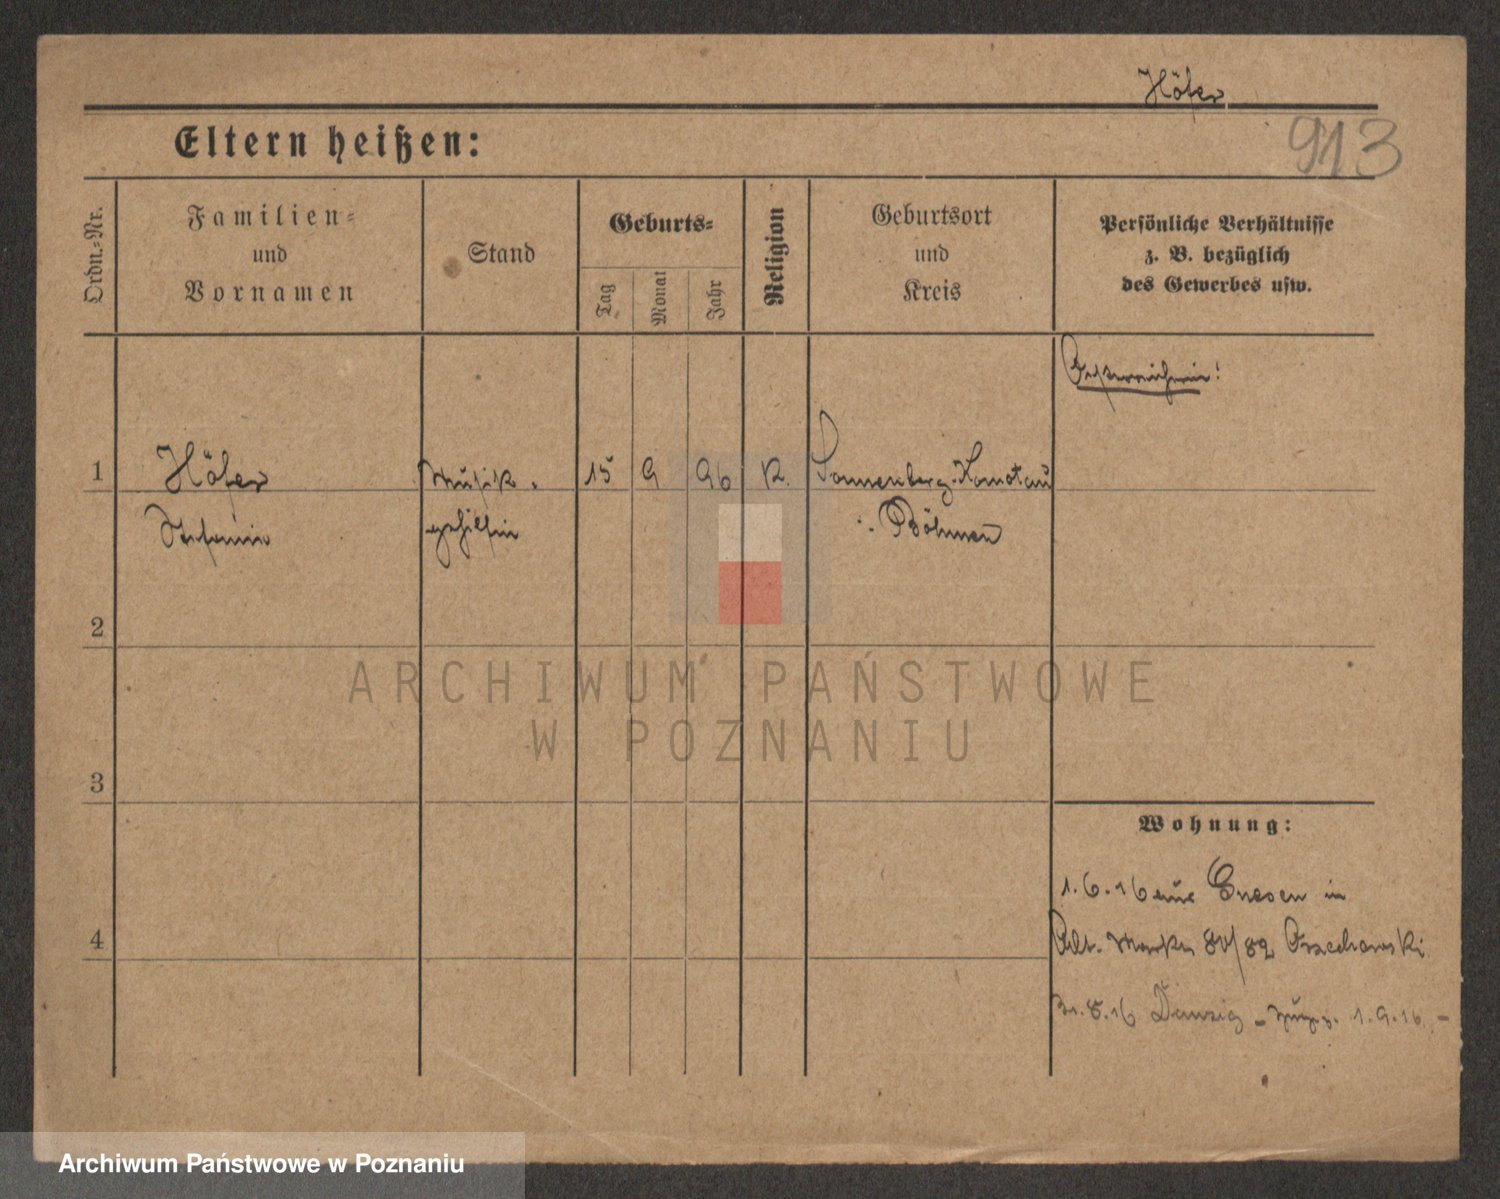 Höfer
913
Eltern heißen:
Ordn.-Nr.
Familien-
und
Vornamen
Stand
Geburts-
Tag
Monat
Jahr
Religion
Geburtsort
und
Kreis
Persönliche Verhältnisse
z. B. bezüglich
des Gewerbes usw.
Österreicherin!
1
Höfer
Stefanie
Musik-
gehilfin
15
9
96
K.
Sonnenberg-Komotau
Böhmen
2
3
4
Wohnung:
1.6.16 aus Gnesen in
Alt. Markt 80/82 Orzechowski
31.8.16 Danzig - 1.9.16.-
ARCHIWUM PAŃSTWOWE
W POZNANIU
Archiwum Państwowe w Poznaniu